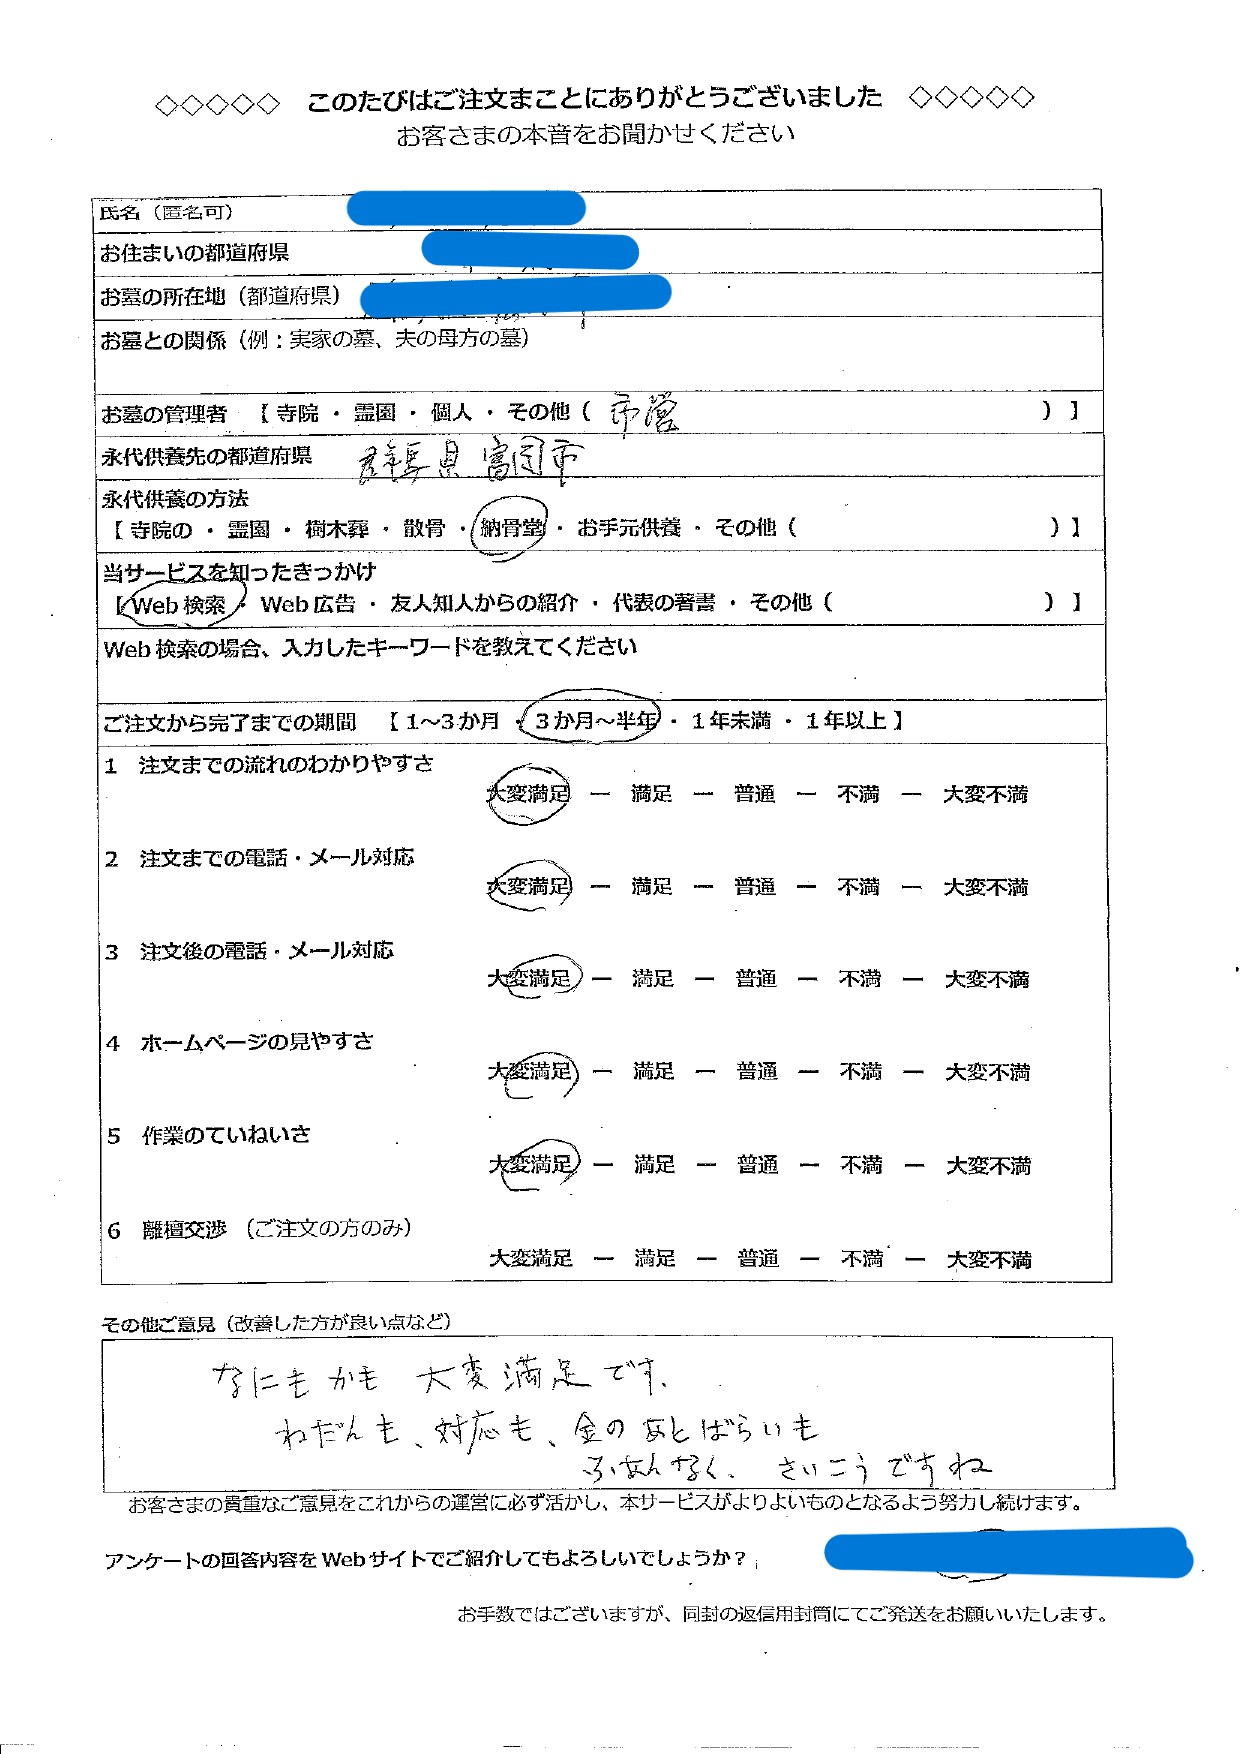 ◇◇◇◇◇ このたびはご注文まことにありがとうございました ◇◇◇◇◇
お客さまの本音をお聞かせください
氏名（匿名可）
お住まいの都道府県
お墓の所在地（都道府県）
お墓との関係（例：実家の墓、夫の母方の墓）
お墓の管理者 【 寺院 ・ 霊園 ・ 個人 ・ その他（ 市営 ）】
永代供養先の都道府県 群馬県富岡市
永代供養の方法
【 寺院の ・ 霊園 ・ 樹木葬 ・ 散骨 ・ 納骨堂 ・ お手元供養 ・ その他（ ）】
当サービスを知ったきっかけ
【 Web 検索 ・ Web 広告 ・ 友人知人からの紹介 ・ 代表の著書 ・ その他（ ）】
Web 検索の場合、入力したキーワードを教えてください
ご注文から完了までの期間 【 1～3か月 ・ 3か月～半年 ・ 1年未満 ・ 1年以上 】
1 注文までの流れのわかりやすさ
大変満足 ー 満足 ー 普通 ー 不満 ー 大変不満
2 注文までの電話・メール対応
大変満足 ー 満足 ー 普通 ー 不満 ー 大変不満
3 注文後の電話・メール対応
大変満足 ー 満足 ー 普通 ー 不満 ー 大変不満
4 ホームページの見やすさ
大変満足 ー 満足 ー 普通 ー 不満 ー 大変不満
5 作業のていねいさ
大変満足 ー 満足 ー 普通 ー 不満 ー 大変不満
6 離檀交渉 （ご注文の方のみ）
大変満足 ー 満足 ー 普通 ー 不満 ー 大変不満
その他ご意見（改善した方が良い点など）
なにもかも 大変満足です.
わだんも、対応も、金のあとばらいも
ふあんなく、さいこうですね
お客さまの貴重なご意見をこれからの運営に必ず活かし、本サービスがよりよいものとなるよう努力し続けます。
アンケートの回答内容を Web サイトでご紹介してもよろしいでしょうか？
お手数ではございますが、同封の返信用封筒にてご発送をお願いいたします。